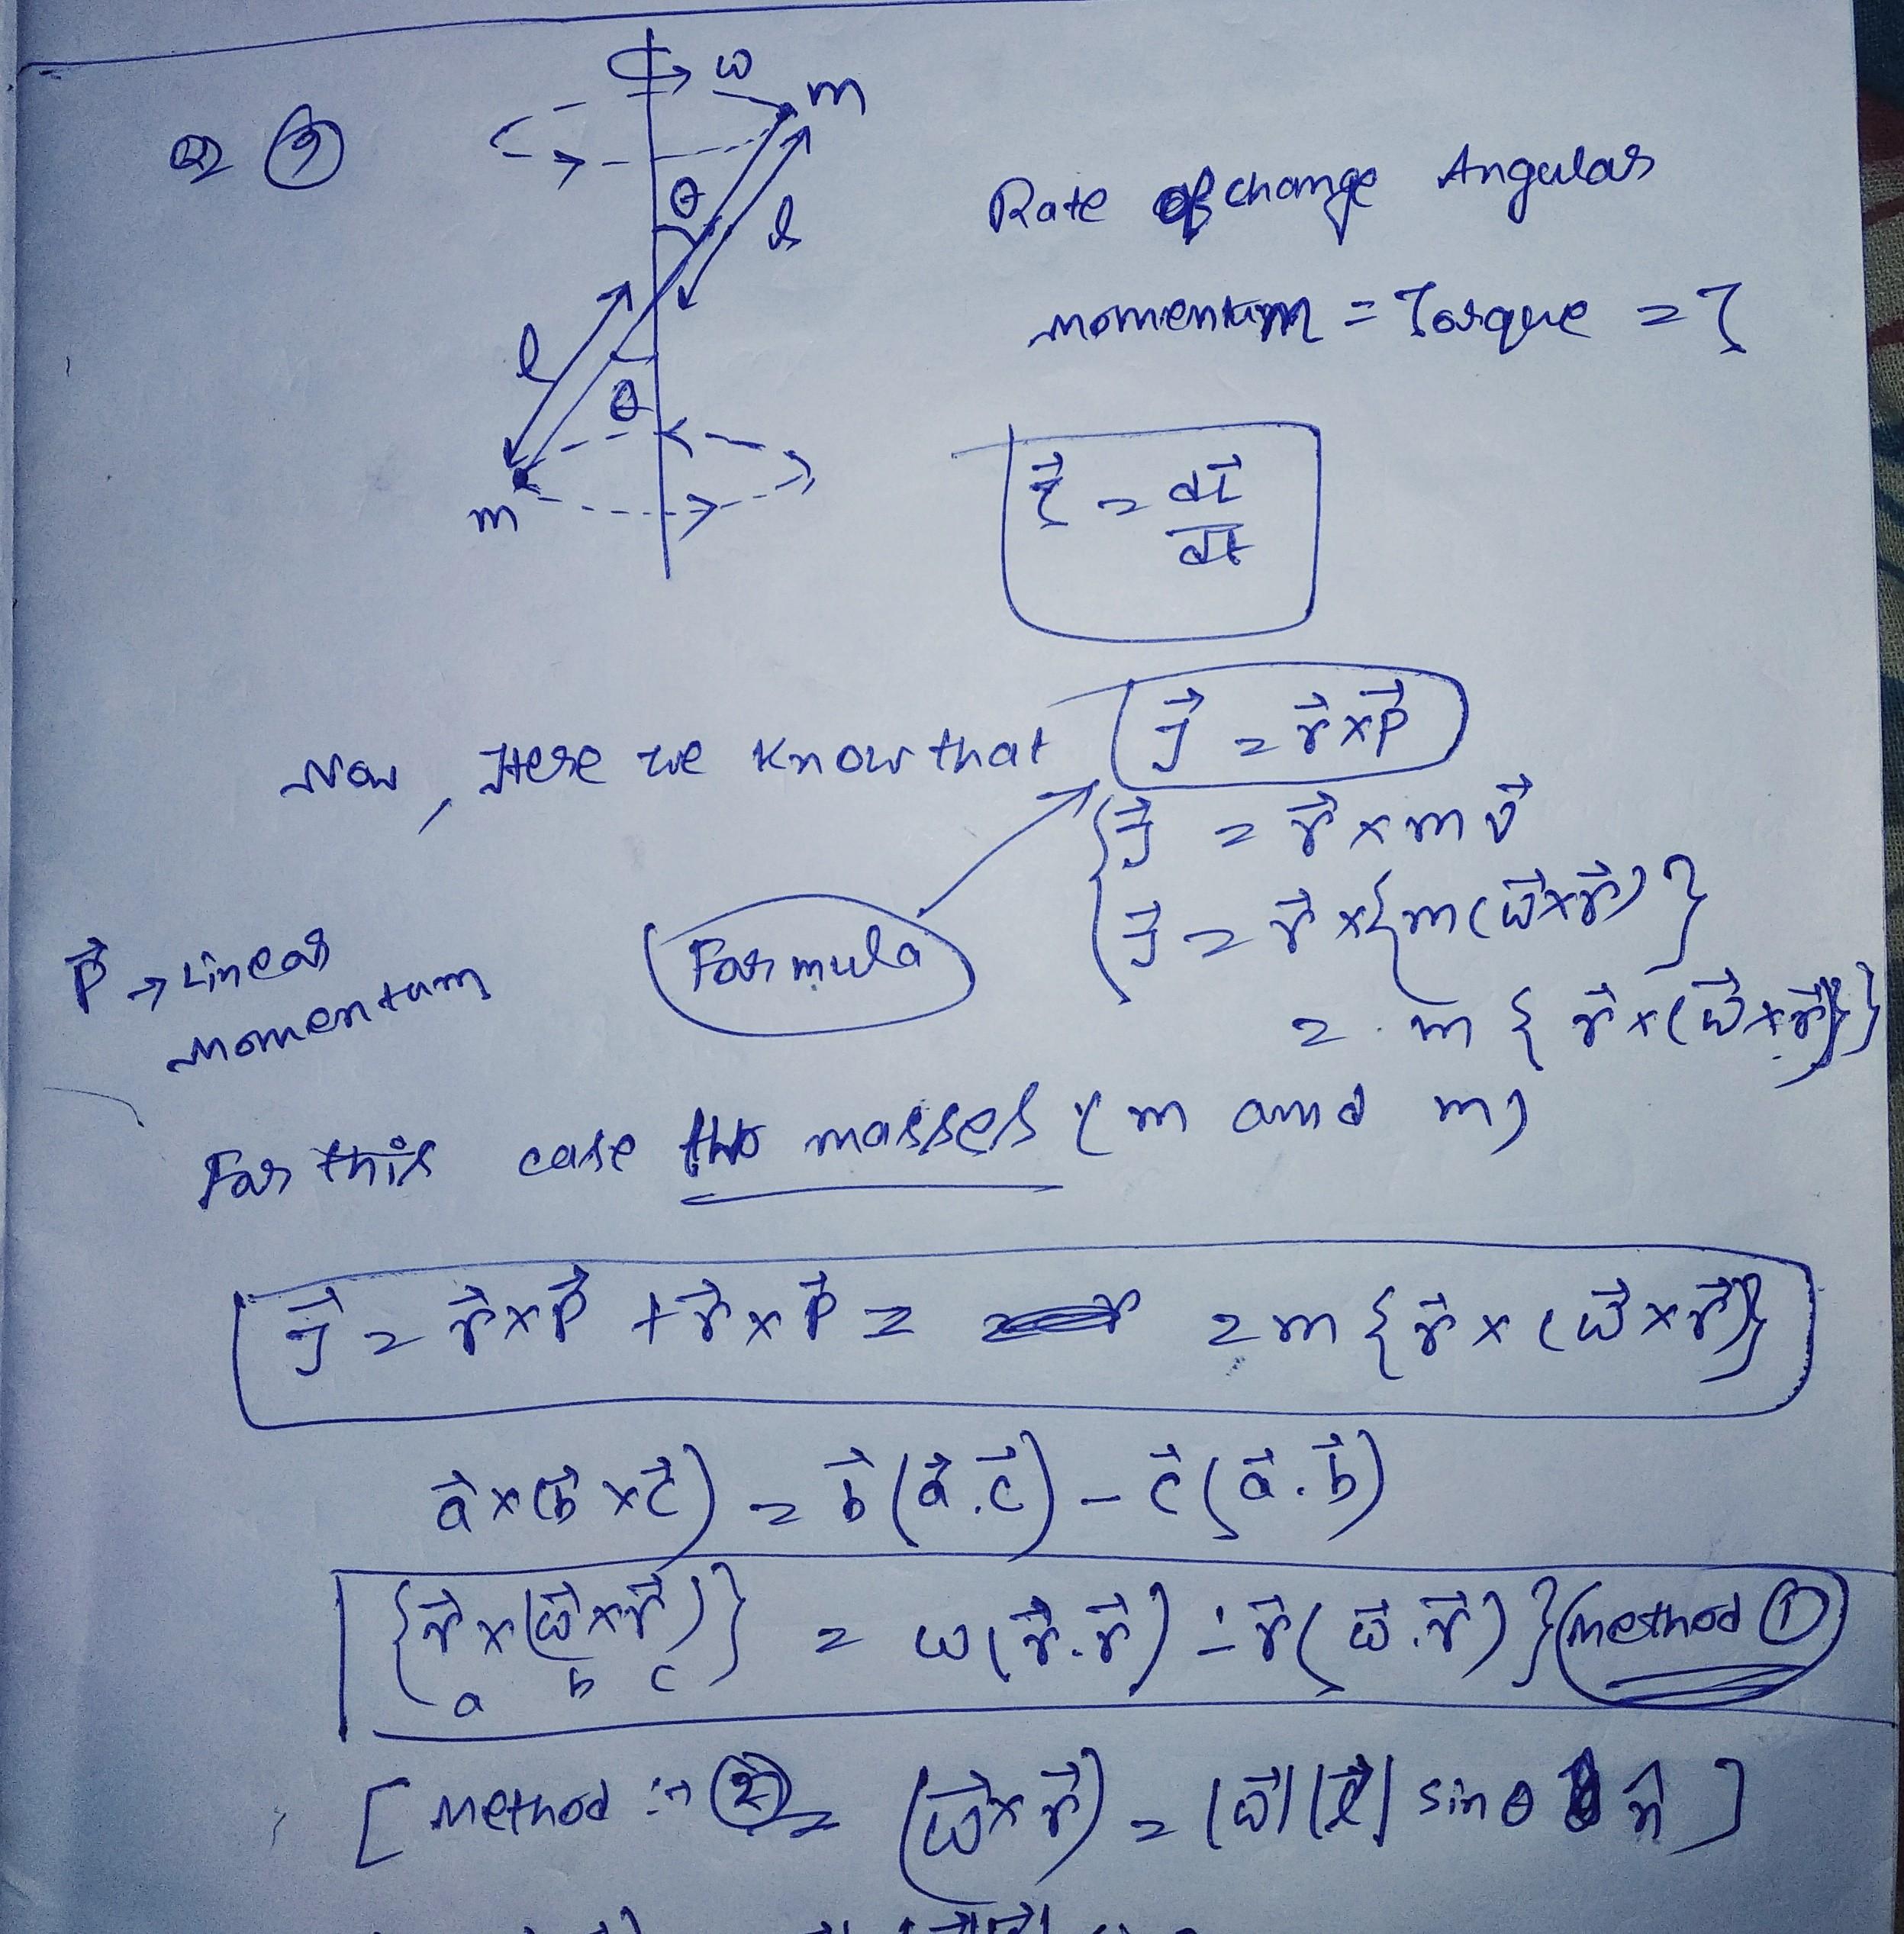 Q ⑨
ω
m
θ
l
l
θ
m
Rate of change Angular
momentum = Torque = τ
τ⃗ = dL⃗/dt
Now, Here we know that J⃗ = r⃗×P⃗
J⃗ = r⃗×mv⃗
Formula
J⃗ = r⃗×{m(ω⃗×r⃗)}
P⃗ → Linear
momentum
= m{r⃗×(ω⃗×r⃗)}
For this case two masses (m and m)
J⃗ = r⃗×P⃗ + r⃗×P⃗ = = m{r⃗×(ω⃗×r⃗)}
a⃗×(b⃗×c⃗) = b⃗(a⃗.c⃗) - c⃗(a⃗.b⃗)
{r⃗×(ω⃗×r⃗)} = ω(r⃗.r⃗) - r⃗(ω⃗.r⃗)} Method ①
a b c
[Method :- ② = (ω⃗×r⃗) = |ω⃗||r⃗| sinθ n̂]